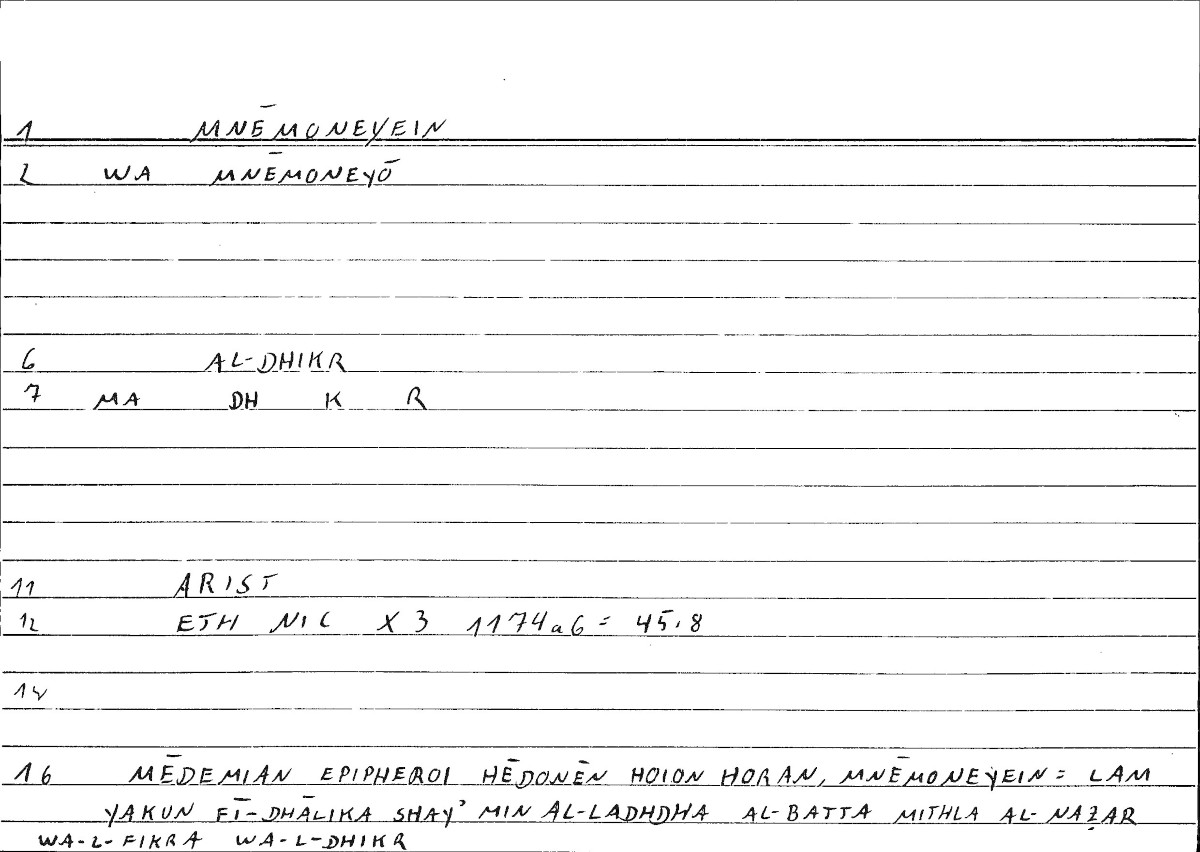 1 MNĒMONEYEIN
2 WA MNĒMONEYŌ
6 AL-DHIKR
7 MA DH K R
11 ARIST
12 ETH NIC X 3 1174a6 = 45.8
14
16 MĒDEMIAN EPIPHEROI HĒDONĒN HOION HORAN, MNĒMONEYEIN = LAM
YAKUN FĪ-DHĀLIKA SHAY' MIN AL-LADHDHA AL-BATTA MITHLA AL-NAẒAR
WA-L-FIKRA WA-L-DHIKR